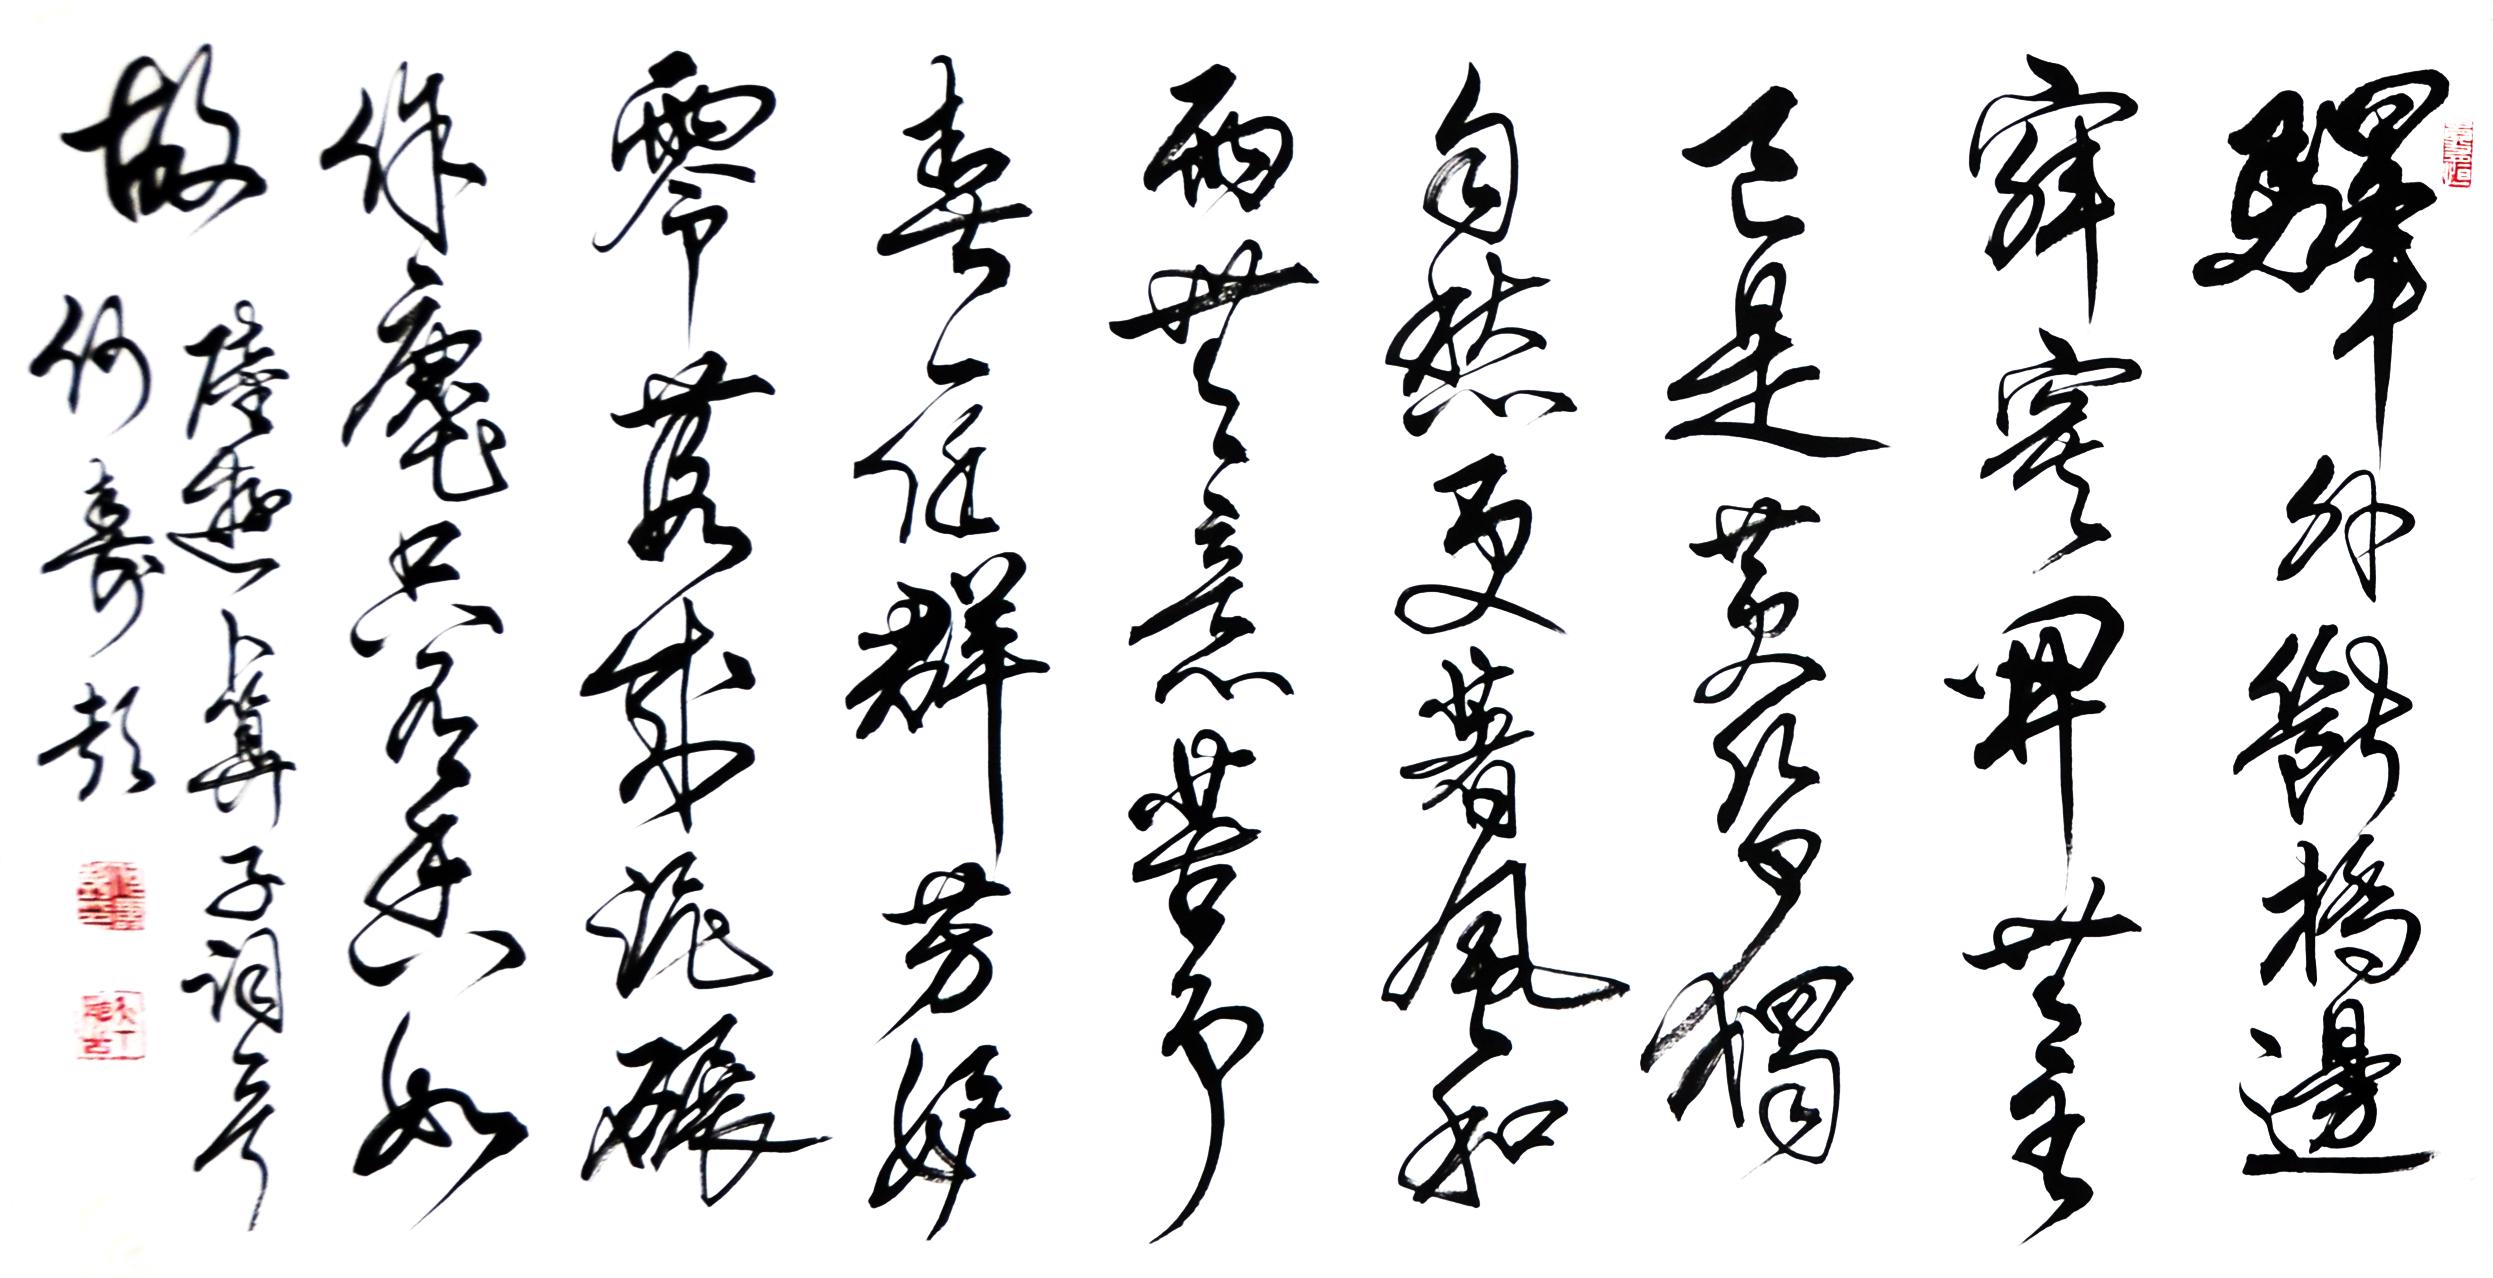 驛外斷橋邊
寂寞開無主
已是黃昏獨
自愁更著風和
雨無意苦爭
春一任群芳妒
零落成泥碾
作塵只有香如
故
陸遊卜算子詞
何壽